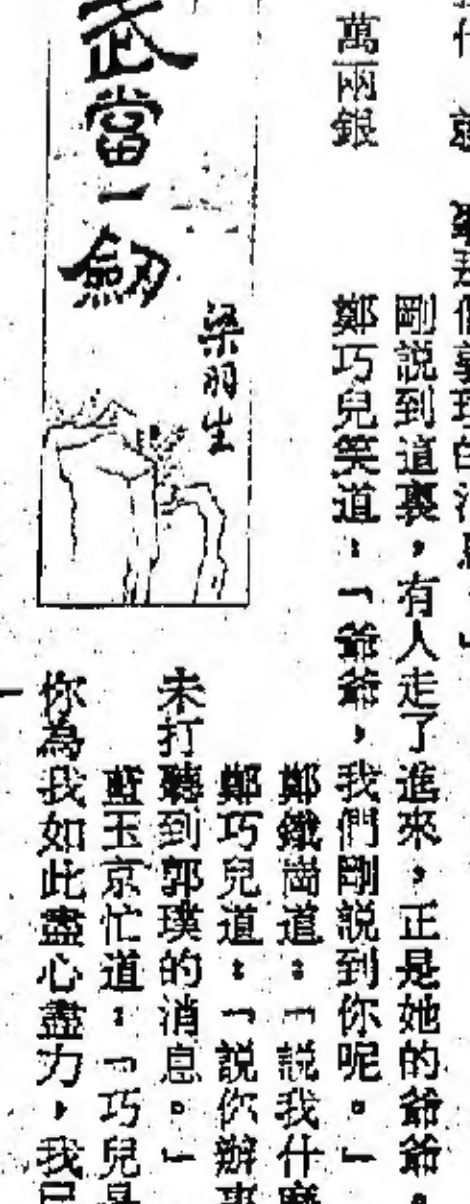 萬兩銀
剛說到這裏，有人走了進來，正是她的爺爺。
鄭巧兒笑道：「爺爺，我們剛說到你呢。」
鄭鐵崗道：「說我什麼
鄭巧兒道：「說你辦事
未打聽到郭璞的消息。」
藍玉京忙道：「巧兒是
你為我如此盡心盡力，我已
武當一劍
梁羽生